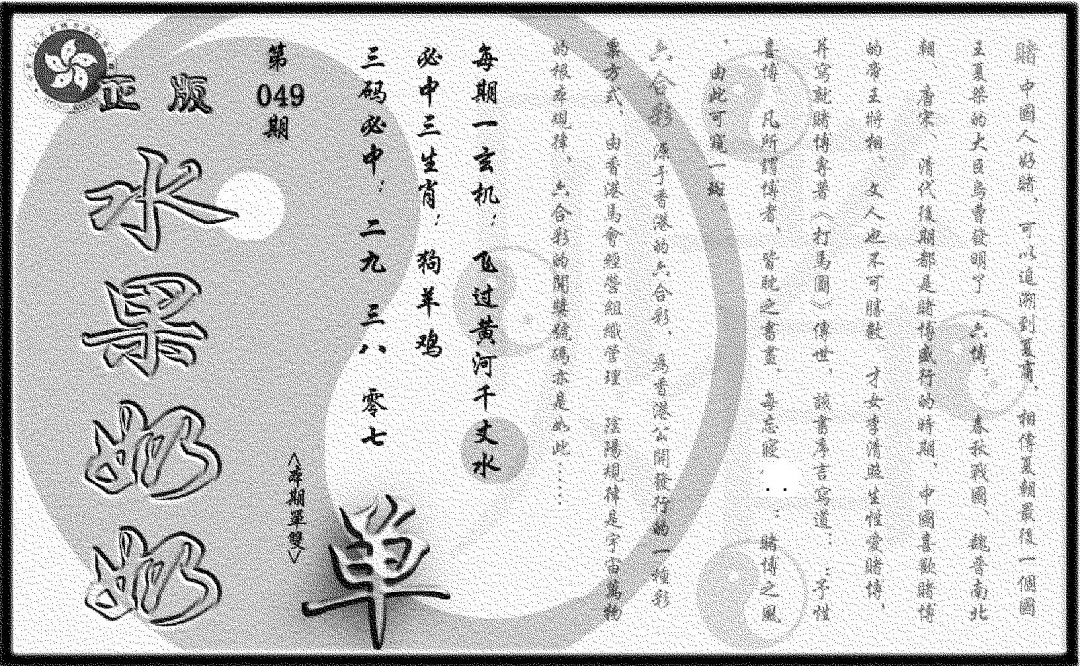 賭中國人好賭，可以追溯到夏商，相傳夏朝最後一個國
王夏桀的大臣烏曹發明了：六博；春秋戰國、魏晉南北
朝、唐宋、清代後期都是賭博盛行的時期，中國喜歡賭博
的帝王將相、文人也不可勝數，才女李清照生性愛賭博，
并寫就賭博專著〈打馬圖〉傳世，該書序言寫道：：予性
喜博，凡所謂博者，皆耽之晝晝，每忘寢..：賭博之風
，由此可窺一斑。
六合彩，源于香港的六合彩，為香港公開發行的一種彩
票方式，由香港馬會經營組織管理，陰陽相律是宇宙萬物
的根本規律，六合彩的開獎號碼亦是如此……
每期一玄机：飞过黄河千丈水
必中三生肖：狗羊鸡
三码必中：二九 三八 零七
第
049
期
正版
水果奶奶
<本期單雙>
单